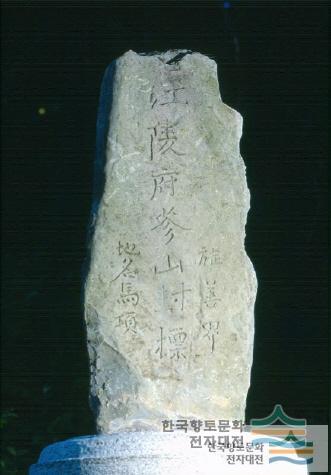 江陵府蔘山封標
旌善界
地名馬項
한국향토문화
전자대전
한국향토문화
전자대전